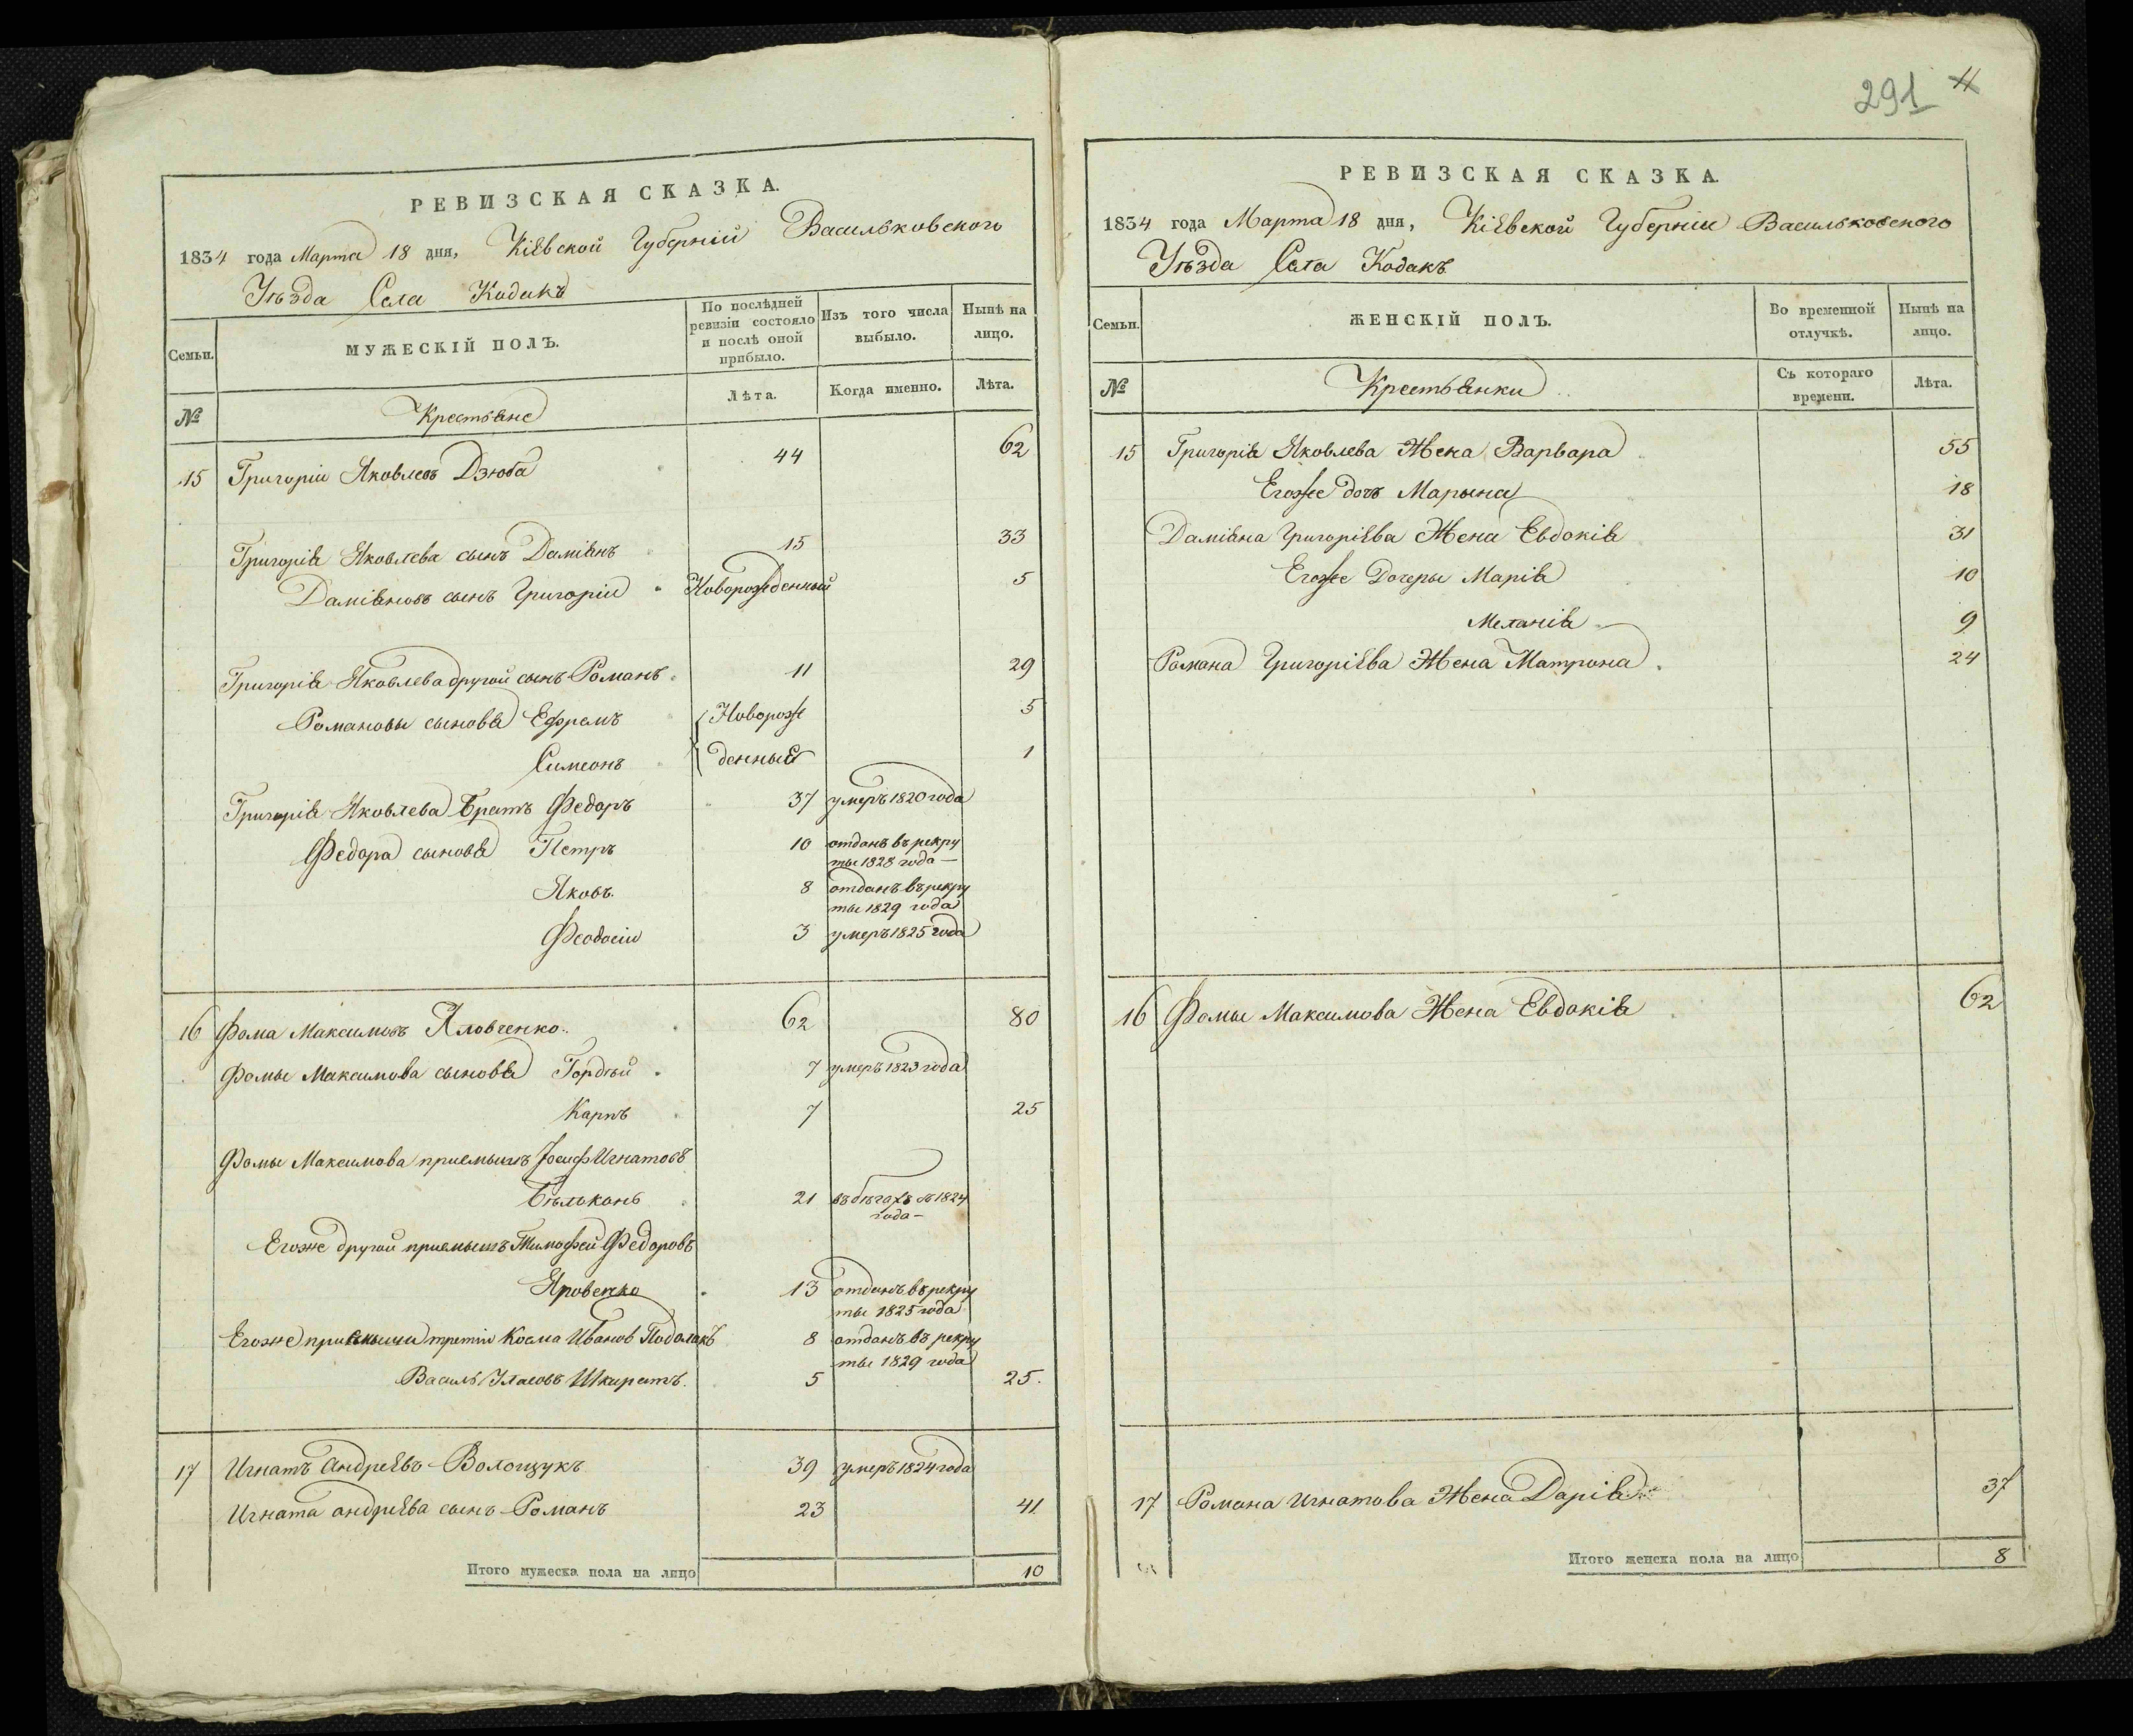 РЕВИЗСКАЯ СКАЗКА.
1834 года Марта 18 дня, Кіевской Губерніи Васильковского
Уѣзда Села Кодакъ
Семьи.
МУЖЕСКІЙ ПОЛЪ.
По послѣдней ревизіи состояло и послѣ оной прибыло.
Изъ того числа выбыло.
Нынѣ на лицо.
№
Крестьяне
Лѣта.
Когда именно.
Лѣта.
15 Григоріи Яковлевъ Дзюба 44 62
Григорія Яковлева сынъ Даміянъ 15 33
Даміяновъ сынъ Григоріи Новорожденный 5
Григорія Яковлева другой сынъ Романъ 11 29
Романовы сыновья Ефремъ Новорож 5
Симеонъ денные 1
Григорія Яковлева братъ Федоръ 37 умеръ 1820 года
Федора сыновья Петръ 10 отданъ въ рекру
ты 1828 года
Яковъ. 8 отданъ въ рекру
ты 1829 года
Феодосіи 3 умеръ 1825 года
16 Фома Максимовъ Яловченко. 62 80
Фомы Максимова сыновья Гордѣй 7 умеръ 1823 года
Карпъ 7 25
Фомы Максимова приемышъ Іосиф Игнатовъ
Бѣлоконь 21 въ бѣгахъ съ 1824
года
Егоже другой приемышъ Тимофей Федоровъ
Яровенко 13 отданъ въ рекру
ты 1825 года
Егоже приемыши третіи Косма Иванов Подолякъ 8 отданъ въ рекру
ты 1829 года
Василь Уласовъ Шкиратъ. 5 25.
17 Игнатъ Андреевъ Волощукъ 39 умеръ 1824 года
Игната андреева сынъ Романъ 23 41
Итого мужеска пола на лицо 10
291
11
РЕВИЗСКАЯ СКАЗКА.
1834 года Марта 18 дня, Кіевской Губерніи Васильковского
Уѣзда Села Кодакъ
Семьи.
ЖЕНСКІЙ ПОЛЪ.
Во временной отлучкѣ.
Нынѣ на лицо.
№
Крестьянки
Съ котораго времени.
Лѣта.
15 Григорія Яковлева Жена Варвара 55
Егоже дочь Марына 18
Даміяна Григоріева Жена Евдокія 31
Егоже Дочеры Марія 10
Меланія 9
Романа Григоріева Жена Матрона 24
16 Фомы Максимова Жена Евдокія 62
17 Романа Игнатова Жена Дарія 37
Итого женска пола на лицо 8